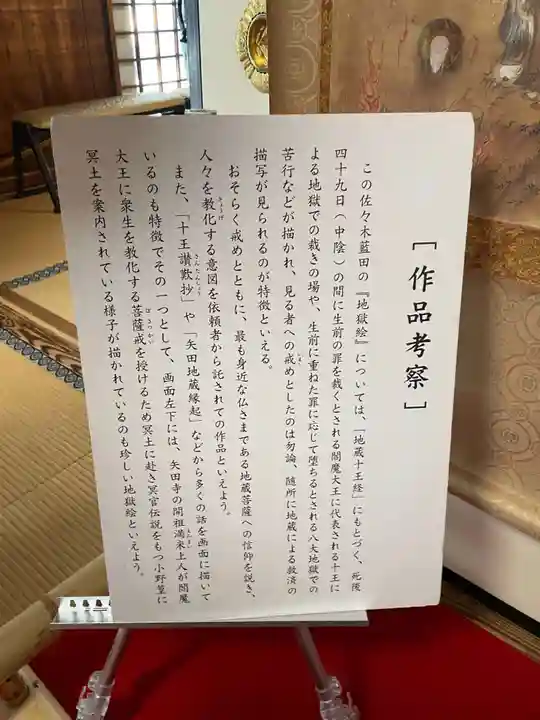 ［作品考察］
この佐々木藍田の『地獄絵』については、「地蔵十王経」にもとづく、死後
四十九日（中陰）の間に生前の罪を裁くとされる閻魔大王に代表される十王に
よる地獄での裁きの場や、生前に重ねた罪に応じて堕ちるとされる八大地獄での
苦行などが描かれ、見る者への戒めとしたのは勿論、随所に地蔵による救済の
描写が見られるのが特徴といえる。
おそらく戒めとともに、最も身近な仏さまである地蔵菩薩への信仰を説き、
人々を教化する意図を依頼者から託されての作品といえよう。
また、「十王讃歎抄」や「矢田地蔵縁起」などから多くの話を画面に描いて
いるのも特徴でその一つとして、画面左下には、矢田寺の開祖満米上人が閻魔
大王に衆生を教化する菩薩戒を授けるため冥土に赴き冥官伝説をもつ小野篁に
冥土を案内されている様子が描かれているのも珍しい地獄絵といえよう。